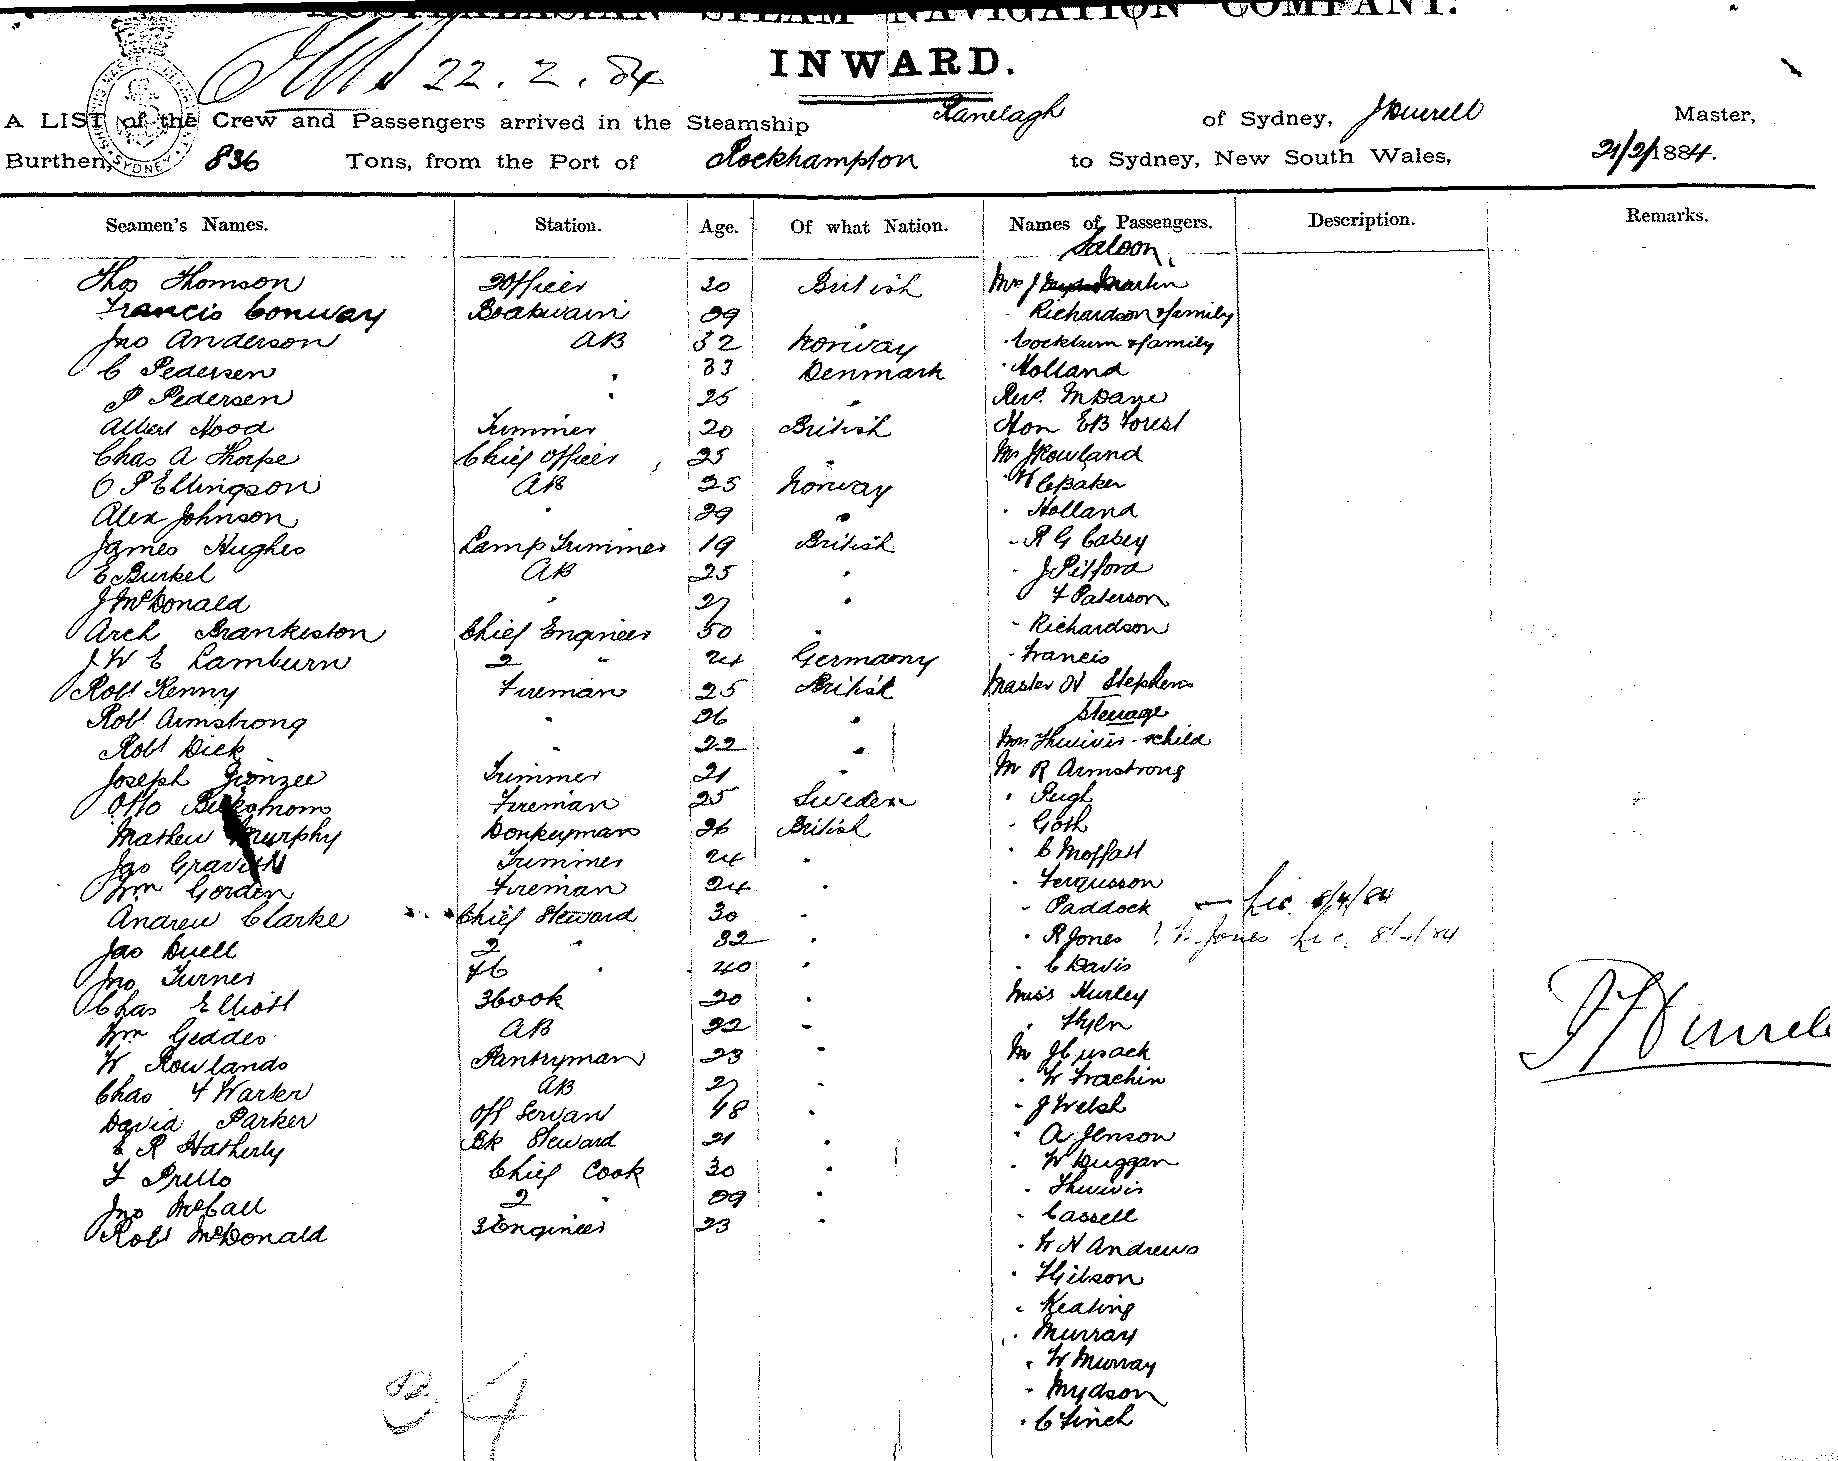 AUSTRALASIAN STEAM NAVIGATION COMPANY.
22.2.84
INWARD.
A LIST of the Crew and Passengers arrived in the Steamship Ranelagh of Sydney, J Durrell Master,
Burthen, 836 Tons, from the Port of Rockhampton to Sydney, New South Wales, 21/2/1884.
Seamen's Names. Station. Age. Of what Nation. Names of Passengers. Description. Remarks.
Saloon
Thos Thomson 2 Officer 30 British Mrs J Martin
Francis Conway Boatswain 29 " Richardson & family
Jno Anderson AB 32 Norway " Cockburn & family
C Pedersen " 33 Denmark " Holland
P Pedersen " 25 " Rev. M Dane
Albert Hood Trimmer 20 British Hon E B Forest
Chas A Thorpe Chief Officer 25 " Mr J Rowland
O P Ellingson AB 25 Norway " H C Baker
Alex Johnson " 29 " " Holland
James Hughes Lamp Trimmer 19 British " R G Casey
E Burkel AB 25 " " J Pitford
J McDonald " 27 " F Paterson
Arch Brankeston Chief Engineer 50 " " Richardson
J W E Lamburn 2 " 24 Germany " Francis
Robt Kenny Fireman 25 British Master H Stephens
Robt Armstrong " 26 " Steerage
Robt Dick " 22 " Mrs & child
Joseph Trimmer 21 " Mr R Armstrong
Otto Fireman 25 Sweden " Pugh
Mathew Murphy Donkeyman 26 British " Goth
Jas Trimmer 24 " " C Moffatt
Wm Gorden Fireman 24 " " Fergusson
Andrew Clarke Chief Steward 30 " " Paddock — Lic. 8/4/84
Jas Duell 2 " 32 " " R Jones ? Jones Lic.
Jno Turner " 40 " " C Davis
Chas Elliott 3 Cook 20 " Miss Hurley
Wm Geddes AB 22 "
W Rowlands Pantryman 23 " Mr J Cusack
Chas F Warker AB 27 " " W Trachin
David Parker Off Servant 48 " " J Welsh
E R Hatherly Bk Steward 21 " " A Jenson
F Prello Chief Cook 30 " " W Duggan
Jno McCall 2 " 29 "
Robt McDonald 3 Engineer 23 " " Cassell
" W H Andrews
" Gibson
" Keating
" Murray
" W Murray
" Mydson
" C Finch